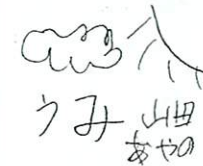 うみ 山田
あやの